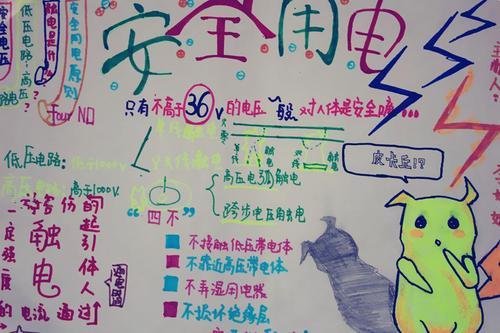 安全用电
安全电压
低压电路:高压?
触电是什么?
安全用电原则
Four NO
只有不高于36V的电压一般对人体是安全哒...
单线触电
双线触电
低压电路:低于1000V
高压电路:高于1000V
高压电弧触电
跨步电压触电
皮卡丘!?
“四不”
不接触低压带电体
不靠近高压带电体
不弄湿用电器
不损坏绝缘层
一定强度的电流通过人体引起的伤害
触电